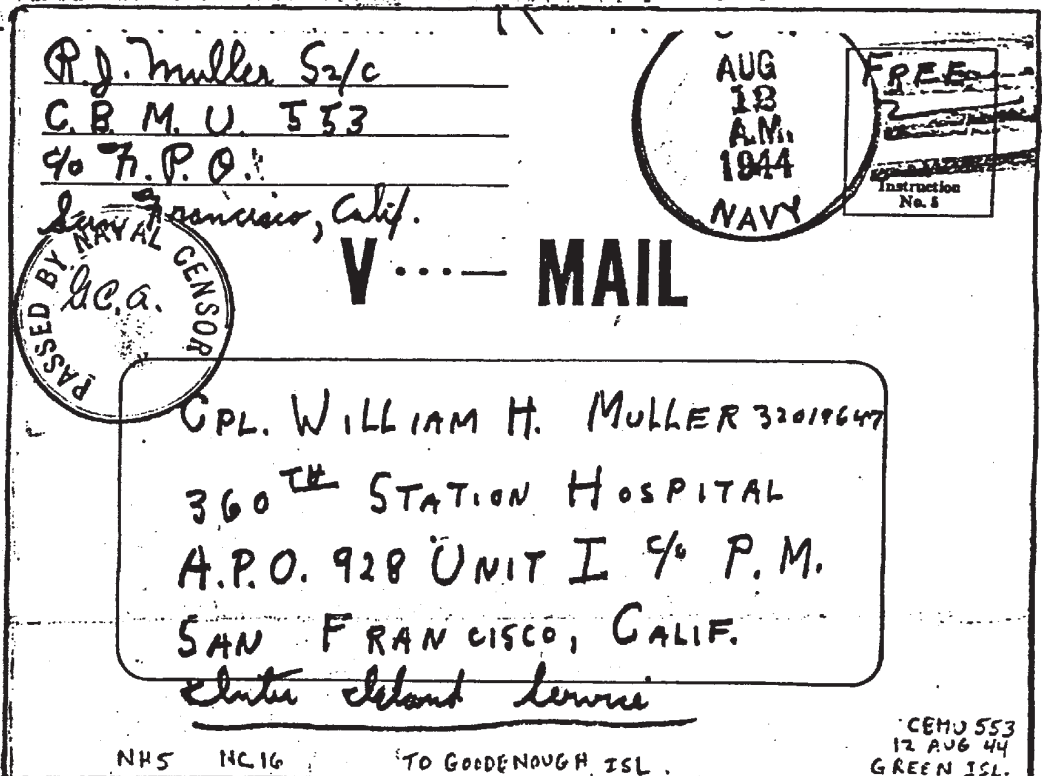 R.J. Muller S2/c
C. B. M. U. 553
c/o F. P. O.
San Francisco, Calif.
AUG
12
A.M.
1944
NAVY
FREE
Instruction
No. 5
PASSED BY NAVAL CENSOR
G.C.A.
V ...— MAIL
CPL. WILLIAM H. MULLER 32019647
360TH STATION HOSPITAL
A.P.O. 928 UNIT I c/o P. M.
SAN FRANCISCO, CALIF.
Inter Island Service
NH5 NC16 TO GOODENOUGH ISL.
CBMU 553
12 AUG 44
GREEN ISL.